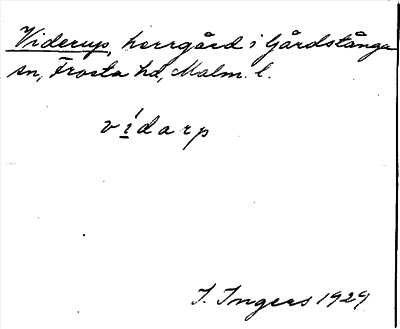 Viderup, herrgård i Gårdstånga
sn, Frosta hd, Malm. l.
vídarp
I. Ingers 1929